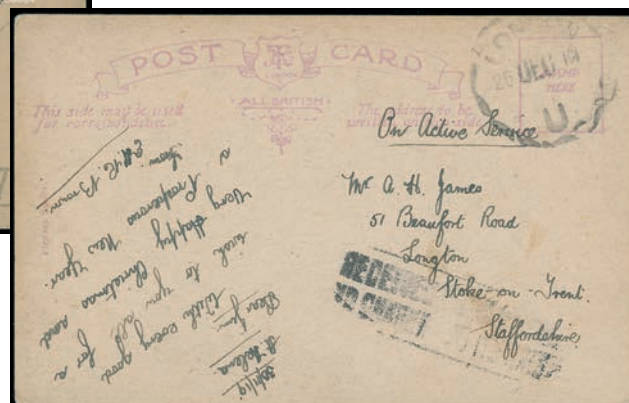 POST CARD
ALL BRITISH
This side may be used
for correspondence.
The address to be
On Active Service
Mr A. H. James
51 Beaufort Road
Longton
Stoke-on-Trent.
Staffordshire.
26 DEC 19
U.
St Helena
Dear Jim
With every good
wish to you all for a
Very Happy Christmas and
a Prosperous New Year.
from
Brown